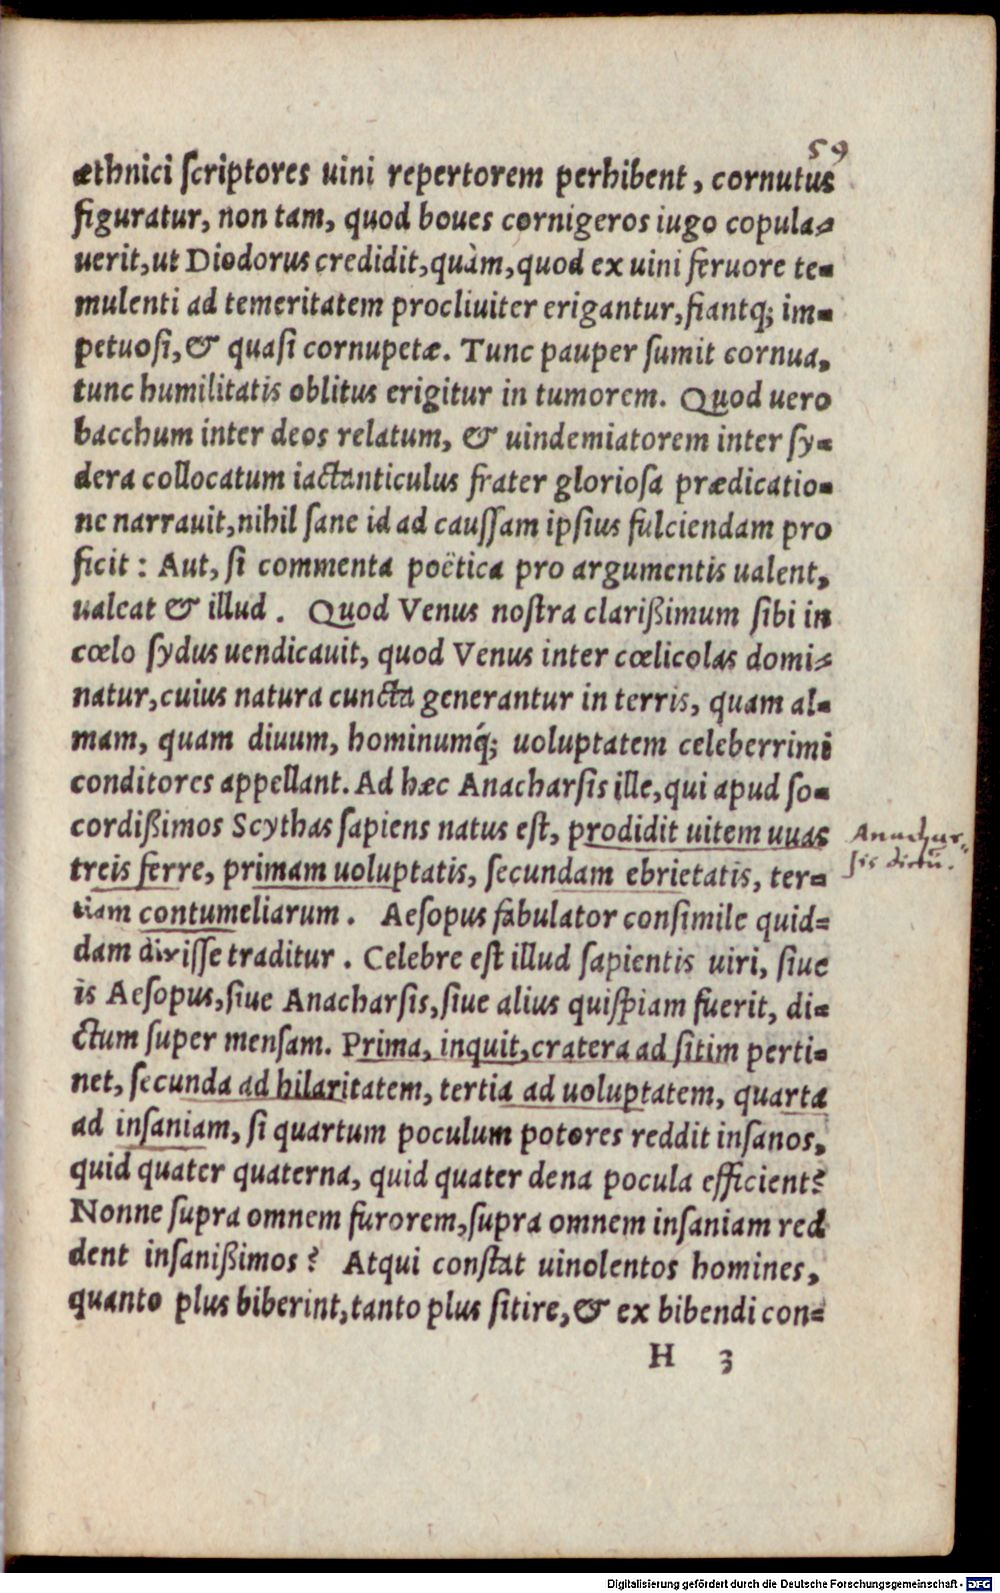 59
æthnici scriptores uini repertorem perhibent, cornutus
figuratur, non tam, quod boues cornigeros iugo copula-
uerit, ut Diodorus credidit, quàm, quod ex uini feruore te-
mulenti ad temeritatem procliuiter erigantur, fiantq; im-
petuosi, & quasi cornupetæ. Tunc pauper sumit cornua,
tunc humilitatis oblitus erigitur in tumorem. Quod uero
bacchum inter deos relatum, & uindemiatorem inter sy-
dera collocatum iactanticulus frater gloriosa prædicatio-
ne narrauit, nihil sane id ad caussam ipsius fulciendam pro
ficit : Aut, si commenta poëtica pro argumentis ualent,
ualeat & illud . Quod Venus nostra clarißimum sibi in
cœlo sydus uendicauit, quod Venus inter cœlicolas domi-
natur, cuius natura cuncta generantur in terris, quam al-
mam, quam diuum, hominumq́; uoluptatem celeberrimi
conditores appellant. Ad hæc Anacharsis ille, qui apud so-
cordißimos Scythas sapiens natus est, prodidit uitem uuas
treis ferre, primam uoluptatis, secundam ebrietatis, ter-
tiam contumeliarum . Aesopus fabulator consimile quid-
dam dixisse traditur . Celebre est illud sapientis uiri, siue
is Aesopus, siue Anacharsis, siue alius quispiam fuerit, di-
ctum super mensam. Prima, inquit, cratera ad sitim perti-
net, secunda ad hilaritatem, tertia ad uoluptatem, quarta
ad insaniam, si quartum poculum potores reddit insanos,
quid quater quaterna, quid quater dena pocula efficient?
Nonne supra omnem furorem, supra omnem insaniam red
dent insanißimos ? Atqui constat uinolentos homines,
quanto plus biberint, tanto plus sitire, & ex bibendi con-
H 3
Anachar-
sis dictū.
Digitalisierung gefördert durch die Deutsche Forschungsgemeinschaft - DFG